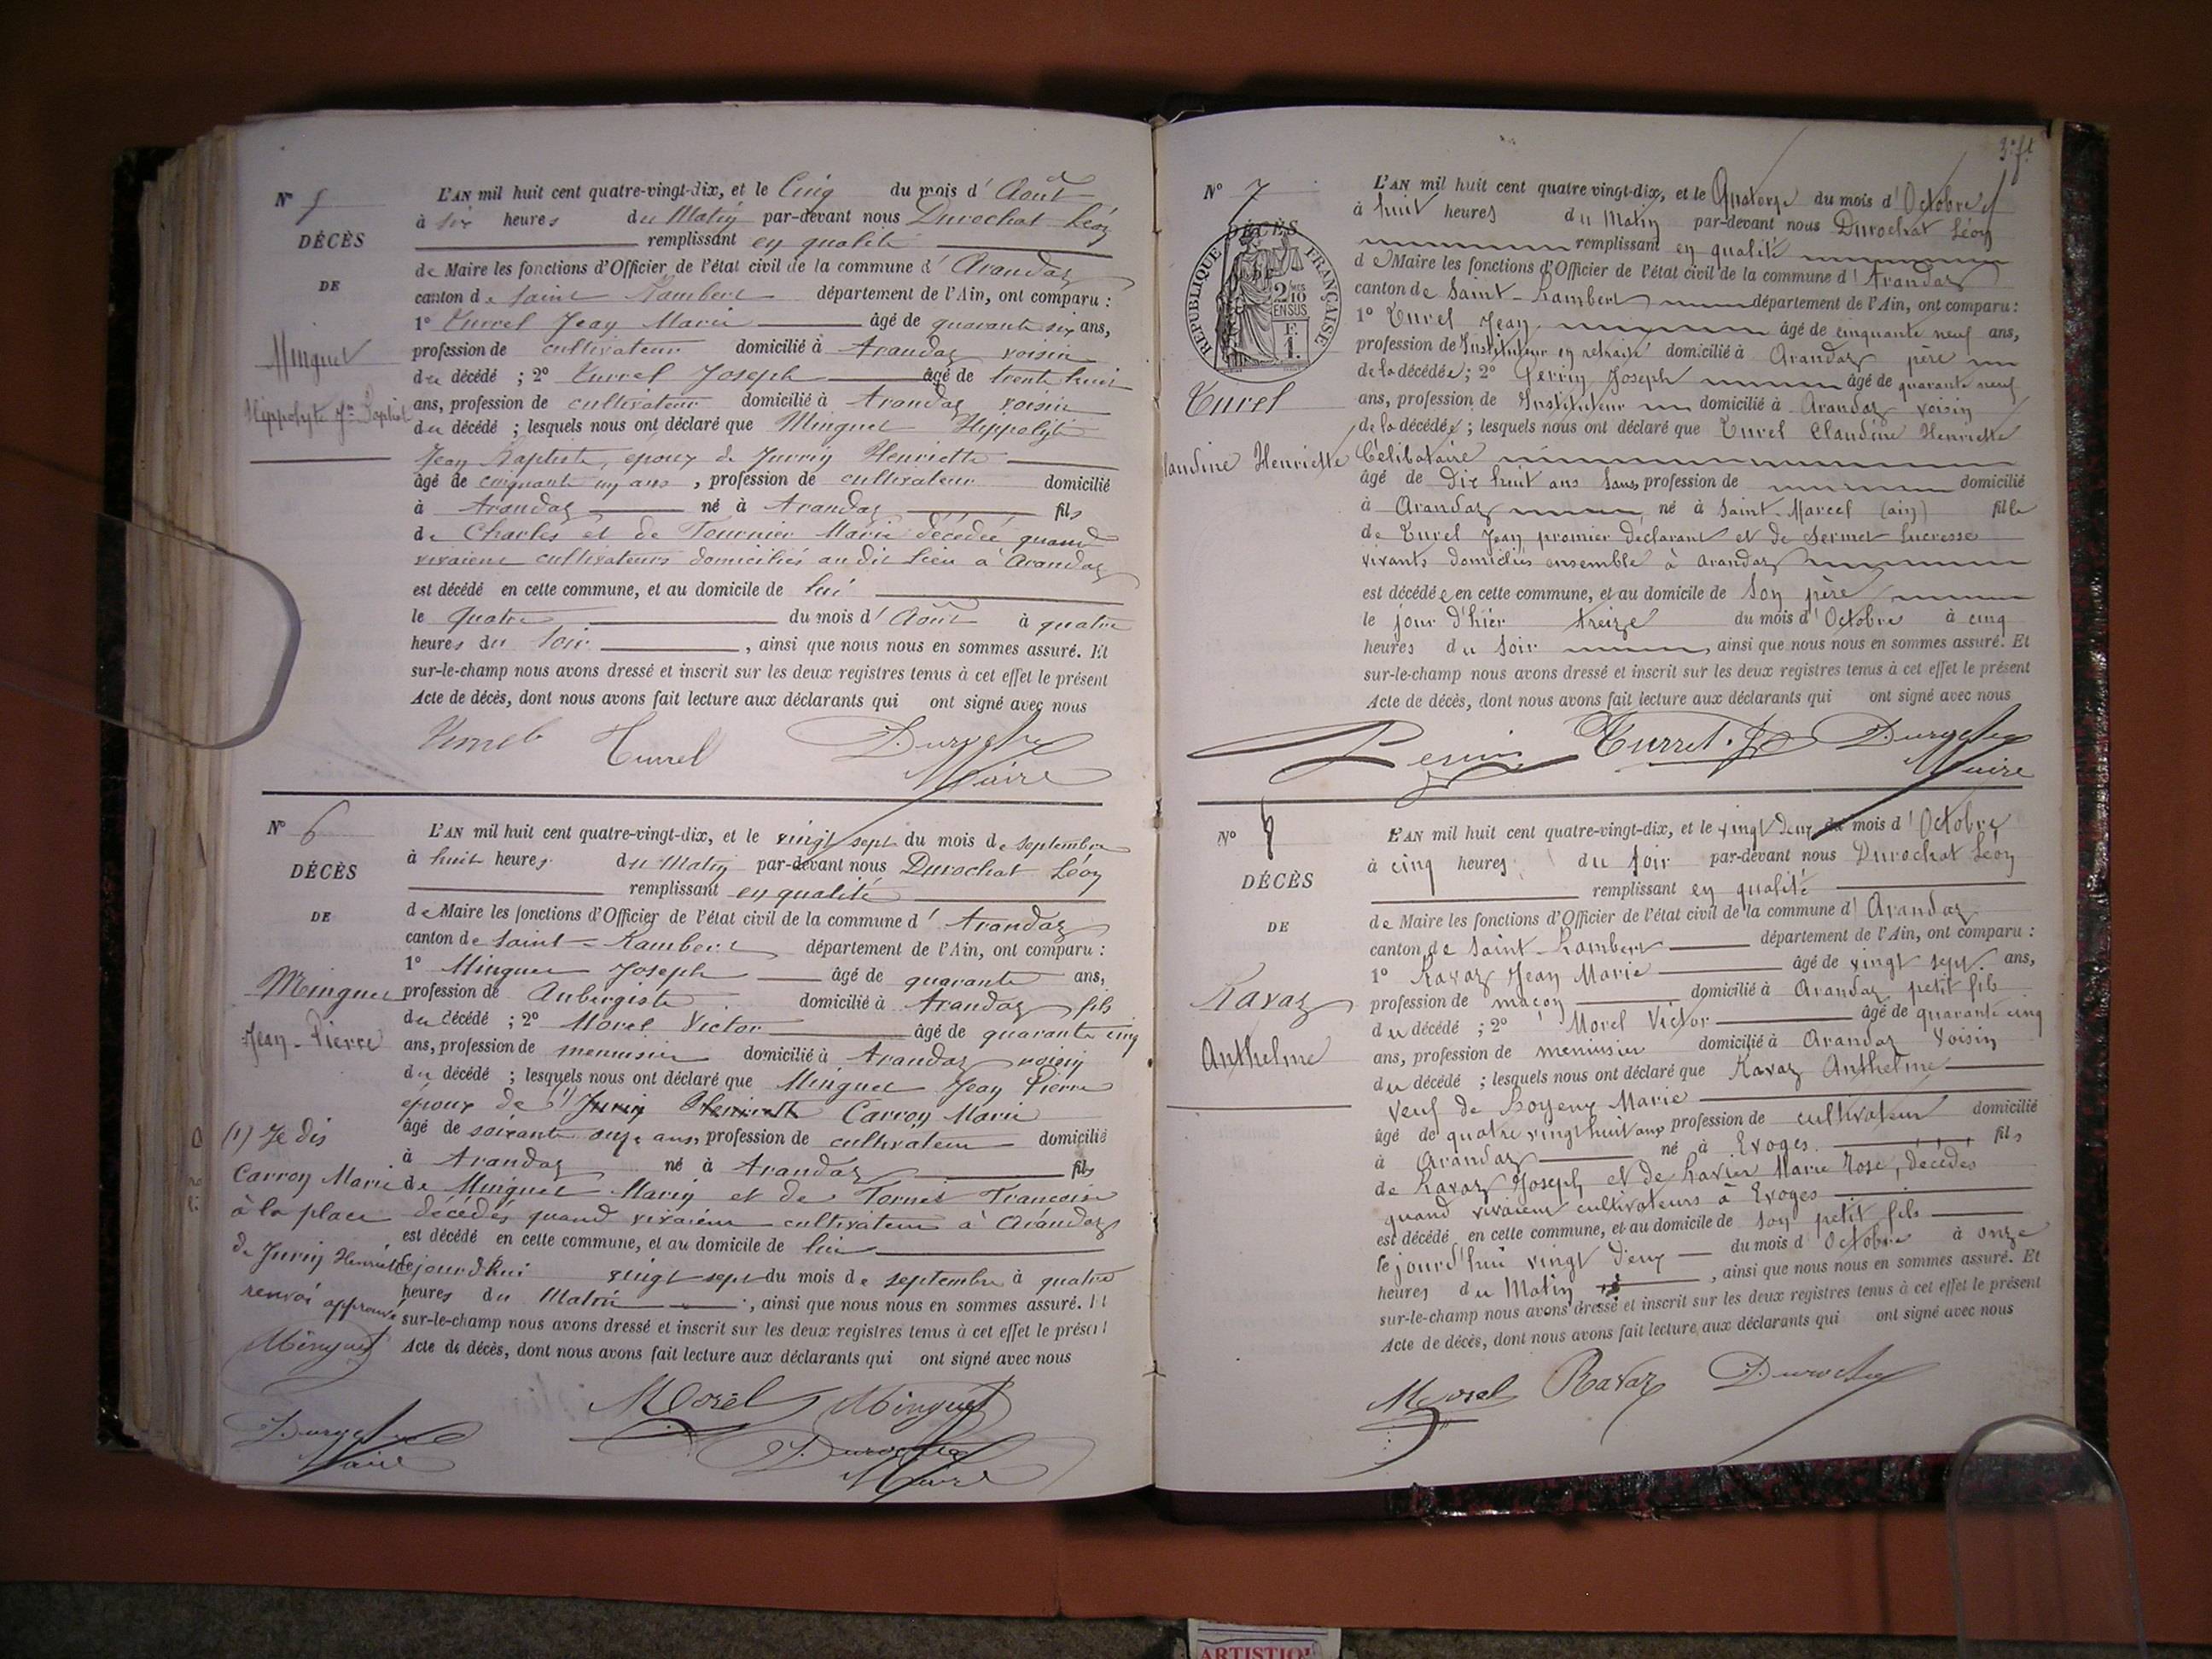 N° 5
DÉCÈS
DE
Minguet
Hippolyte Jn Baptiste
L'AN mil huit cent quatre-vingt-dix, et le Cinq du mois d'Août
à six heures du Matin par-devant nous Durochat Léon
remplissant en qualité
de Maire les fonctions d'Officier de l'état civil de la commune d'Arandaz
canton de Saint Rambert département de l'Ain, ont comparu :
1° Turrel Jean Marie âgé de quarante six ans,
profession de cultivateur domicilié à Arandaz voisin
du décédé ; 2° Turrel Joseph âgé de trente huit
ans, profession de cultivateur domicilié à Arandaz voisin
du décédé ; lesquels nous ont déclaré que Minguet Hippolyte
Jean Baptiste, époux de Juvrin Henriette
âgé de cinquante un ans, profession de cultivateur domicilié
à Arandaz né à Arandaz fils
de Charles et de Tournier Marie décédée quand
vivaient cultivateurs domiciliés au dit lieu à Arandaz
est décédé en cette commune, et au domicile de lui
le quatre du mois d'Août à quatre
heures du soir, ainsi que nous nous en sommes assuré. Et
sur-le-champ nous avons dressé et inscrit sur les deux registres tenus à cet effet le présent
Acte de décès, dont nous avons fait lecture aux déclarants qui ont signé avec nous
Turrel Turrel Durochat
Maire
N° 6
DÉCÈS
DE
Minguet
Jean-Pierre
L'AN mil huit cent quatre-vingt-dix, et le vingt sept du mois de septembre
à huit heures du Matin par-devant nous Durochat Léon
remplissant en qualité
de Maire les fonctions d'Officier de l'état civil de la commune d'Arandaz
canton de Saint-Rambert département de l'Ain, ont comparu :
1° Minguet Joseph âgé de quarante ans,
profession de Aubergiste domicilié à Arandaz fils
du décédé ; 2° Morel Victor âgé de quarante cinq
ans, profession de menuisier domicilié à Arandaz voisin
du décédé ; lesquels nous ont déclaré que Minguet Jean Pierre
époux de (1) Juvrin Henriette Carron Marie
âgé de soixante onze ans, profession de cultivateur domicilié
à Arandaz né à Arandaz fils
de Minguet Marin et de Tornet Françoise
décédés quand vivaient cultivateurs à Arandaz
est décédé en cette commune, et au domicile de lui
le jourd'hui vingt sept du mois de septembre à quatre
heures du Matin, ainsi que nous nous en sommes assuré. Et
sur-le-champ nous avons dressé et inscrit sur les deux registres tenus à cet effet le présent
Acte de décès, dont nous avons fait lecture aux déclarants qui ont signé avec nous
(1) Je dis
Carron Marie
à la place
de Juvrin Henriette
renvoi approuvé
Minguet
Durochat
Maire
Morel Minguet
Durochat
Maire
3e ft
N° 7
DÉCÈS
RÉPUBLIQUE FRANÇAISE
2/10 EN SUS
1 F.
Turel
laudine Henriette
L'AN mil huit cent quatre vingt-dix, et le Quatorze du mois d'Octobre
à huit heures du Matin par-devant nous Durochat Léon
remplissant en qualité
de Maire les fonctions d'Officier de l'état civil de la commune d'Arandaz
canton de Saint-Rambert département de l'Ain, ont comparu :
1° Turel Jean âgé de cinquante neuf ans,
profession de Instituteur en retraite domicilié à Arandaz père
de la décédée ; 2° Perrin Joseph âgé de quarante neuf
ans, profession de Instituteur domicilié à Arandaz voisin
de la décédée ; lesquels nous ont déclaré que Turel Claudine Henriette
Célibataire
âgé de Dix huit ans Sans profession de domicilié
à Arandaz né à Saint-Marcel (ain) fille
de Turel Jean premier déclarant et de Sermet Lucresse
vivants domiciliés ensemble à Arandaz
est décédée en cette commune, et au domicile de Son père
le jour d'hier treize du mois d'Octobre à cinq
heures du Soir, ainsi que nous nous en sommes assuré. Et
sur-le-champ nous avons dressé et inscrit sur les deux registres tenus à cet effet le présent
Acte de décès, dont nous avons fait lecture aux déclarants qui ont signé avec nous
Perrin Turrel. J Durochat
Maire
N° 8
DÉCÈS
DE
Ravaz
Anthelme
L'AN mil huit cent quatre-vingt-dix, et le vingt deux du mois d'Octobre
à cinq heures du soir par-devant nous Durochat Léon
remplissant en qualité
de Maire les fonctions d'Officier de l'état civil de la commune d'Arandaz
canton de Saint-Rambert département de l'Ain, ont comparu :
1° Ravaz Jean Marie âgé de vingt sept ans,
profession de maçon domicilié à Arandaz petit fils
du décédé ; 2° Morel Victor âgé de quarante cinq
ans, profession de menuisier domicilié à Arandaz Voisin
du décédé ; lesquels nous ont déclaré que Ravaz Anthelme
Veuf de Boyeux Marie
âgé de quatre vingt huit ans profession de cultivateur domicilié
à Arandaz né à Evoges fils
de Ravaz Joseph et de Ravier Marie Rose, décédés
quand vivaient cultivateurs à Evoges
est décédé en cette commune, et au domicile de son petit fils
le jourd'hui vingt deux du mois d'Octobre à onze
heures du Matin, ainsi que nous nous en sommes assuré. Et
sur-le-champ nous avons dressé et inscrit sur les deux registres tenus à cet effet le présent
Acte de décès, dont nous avons fait lecture aux déclarants qui ont signé avec nous
Morel Ravaz Durochat